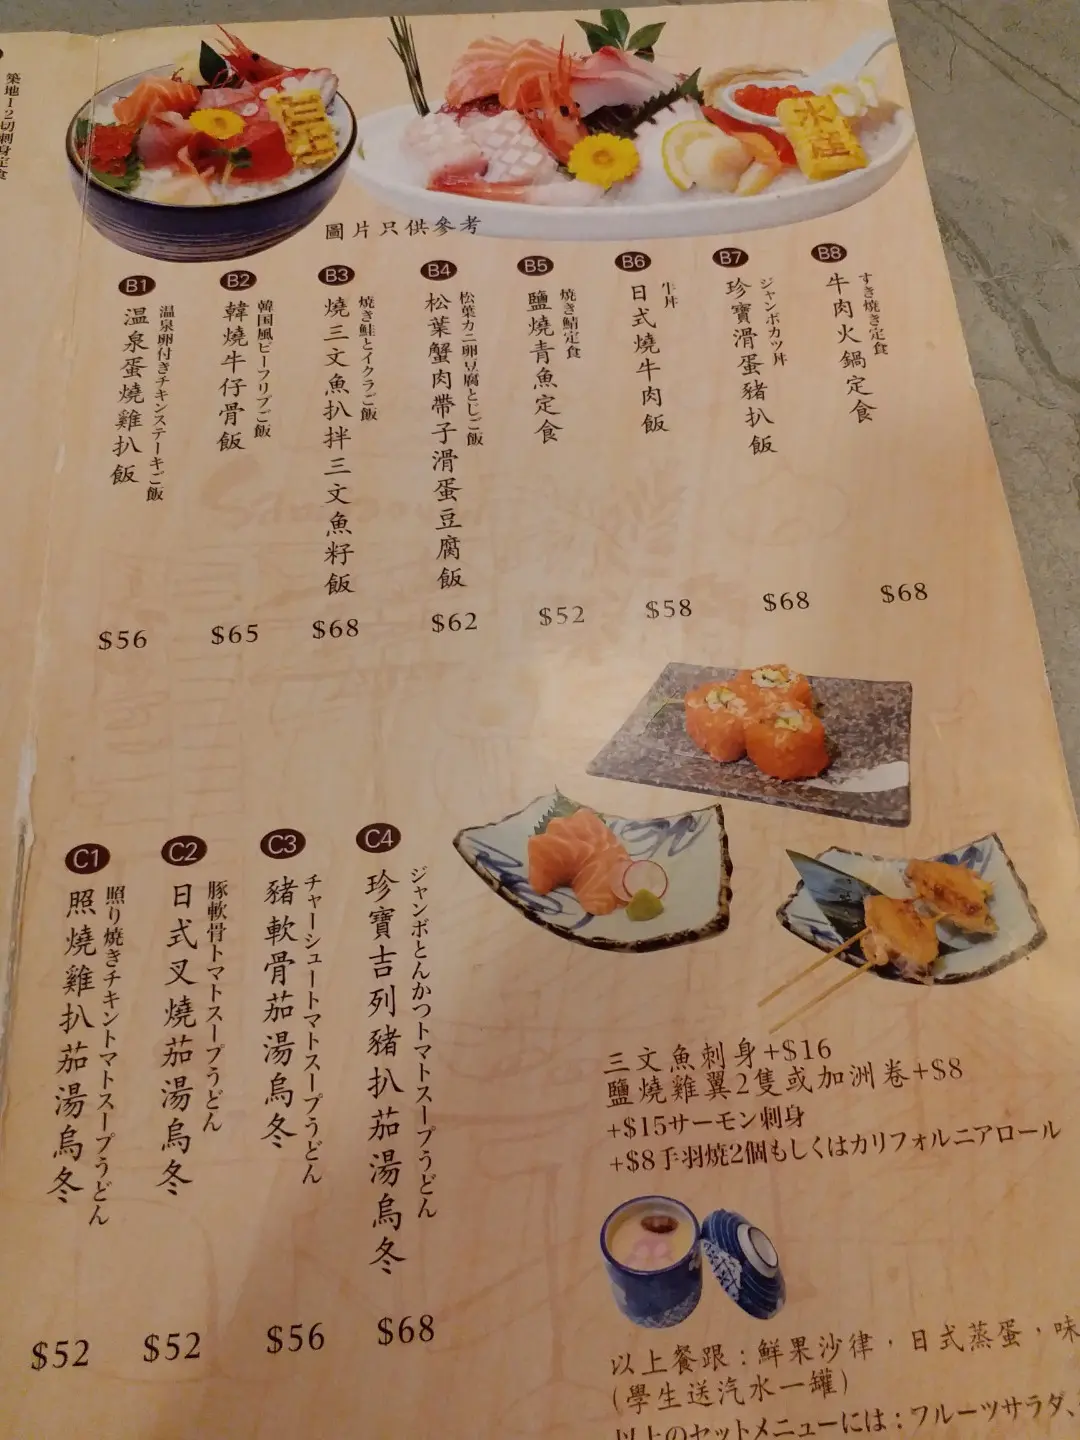 築地12切刺身定食
水産
圖片只供參考
B1
温泉卵付きチキンステーキご飯
温泉蛋燒雞扒飯
$56
B2
韓国風ビーフリブご飯
韓燒牛仔骨飯
$65
B3
焼き鮭とイクラご飯
燒三文魚扒拌三文魚籽飯
$68
B4
松葉カニ卵豆腐とじご飯
松葉蟹肉帶子滑蛋豆腐飯
$62
B5
焼き鯖定食
鹽燒青魚定食
$52
B6
牛丼
日式燒牛肉飯
$58
B7
ジャンボカツ丼
珍寶滑蛋豬扒飯
$68
B8
すき焼き定食
牛肉火鍋定食
$68
C1
照り焼きチキントマトスープうどん
照燒雞扒茄湯烏冬
$52
C2
豚軟骨トマトスープうどん
日式叉燒茄湯烏冬
$52
C3
チャーシュートマトスープうどん
豬軟骨茄湯烏冬
$56
C4
ジャンボとんかつトマトスープうどん
珍寶吉列豬扒茄湯烏冬
$68
三文魚刺身+$16
鹽燒雞翼2隻或加洲卷+$8
+$15サーモン刺身
+$8手羽焼2個もしくはカリフォルニアロール
以上餐跟：鮮果沙律，日式蒸蛋，味
(學生送汽水一罐)
以上のセットメニューには：フルーツサラダ、